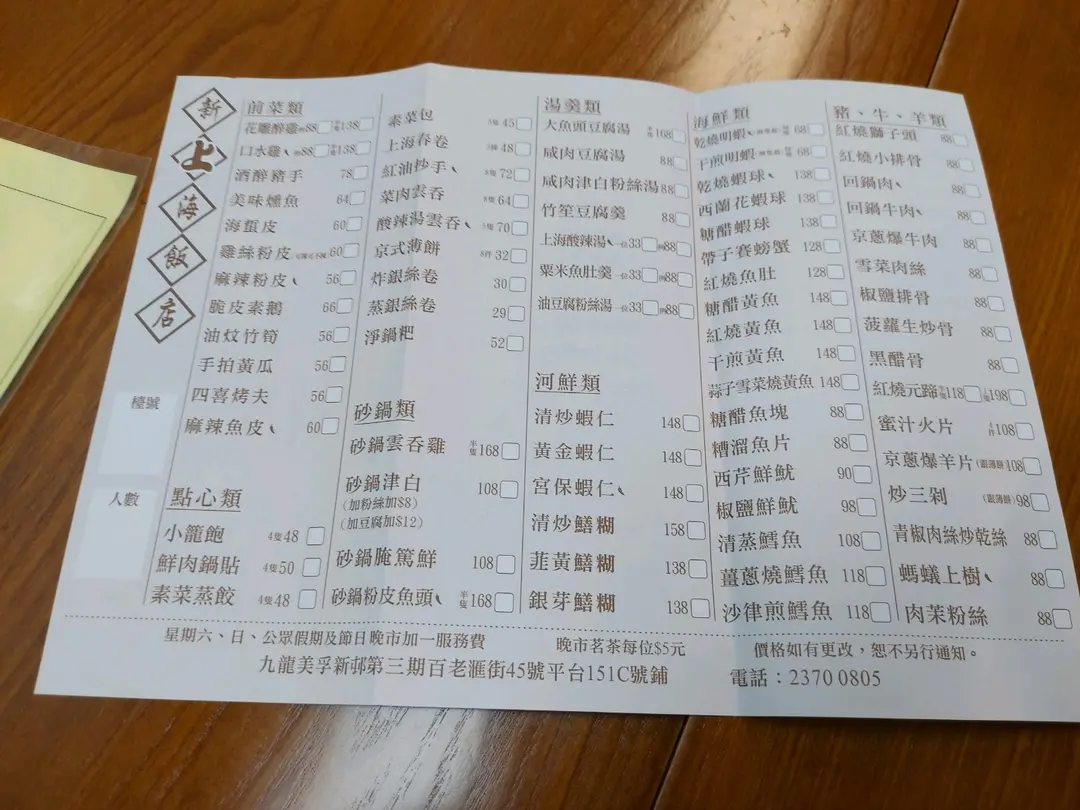 新上海飯店
檯號
人數
前菜類
花雕醉雞 88 138
口水雞 88 138
酒醉豬手 78
美味燻魚 64
海蜇皮 60
雞絲粉皮 60
麻辣粉皮 56
脆皮素鵝 66
油炆竹筍 56
手拍黃瓜 56
四喜烤夫 56
麻辣魚皮 60
點心類
小籠飽 4隻48
鮮肉鍋貼 4隻50
素菜蒸餃 4隻48
素菜包 45
上海春卷 48
紅油抄手 72
菜肉雲吞 64
酸辣湯雲吞 70
京式薄餅 32
炸銀絲卷 30
蒸銀絲卷 29
淨鍋粑 52
砂鍋類
砂鍋雲吞雞 半隻168
砂鍋津白 108
(加粉絲加$8)
(加豆腐加$12)
砂鍋腌篤鮮 108
砂鍋粉皮魚頭 半隻168
湯羹類
大魚頭豆腐湯 168
咸肉豆腐湯 88
咸肉津白粉絲湯 88
竹笙豆腐羹 88
上海酸辣湯 一位33 88
粟米魚肚羹 一位33 88
油豆腐粉絲湯 一位33 88
河鮮類
清炒蝦仁 148
黃金蝦仁 148
宮保蝦仁 148
清炒鱔糊 158
韮黃鱔糊 138
銀芽鱔糊 138
海鮮類
乾燒明蝦 68
干煎明蝦 68
乾燒蝦球 138
西蘭花蝦球 138
糖醋蝦球 138
帶子賽螃蟹 128
紅燒魚肚 128
糖醋黃魚 148
紅燒黃魚 148
干煎黃魚 148
蒜子雪菜燒黃魚 148
糖醋魚塊 88
糟溜魚片 88
西芹鮮魷 90
椒鹽鮮魷 98
清蒸鱈魚 108
薑蔥燒鱈魚 118
沙律煎鱈魚 118
豬、牛、羊類
紅燒獅子頭 88
紅燒小排骨 88
回鍋肉 88
回鍋牛肉 88
京蔥爆牛肉 88
雪菜肉絲 88
椒鹽排骨 88
菠蘿生炒骨 88
黑醋骨 88
紅燒元蹄 118 198
蜜汁火片 4件108
京蔥爆羊片 (跟薄餅) 108
炒三剁 (跟薄餅) 98
青椒肉絲炒乾絲 88
螞蟻上樹 88
肉茉粉絲 88
星期六、日、公眾假期及節日晚市加一服務費 晚市茗茶每位$5元 價格如有更改，恕不另行通知。
九龍美孚新邨第三期百老滙街45號平台151C號鋪 電話：2370 0805